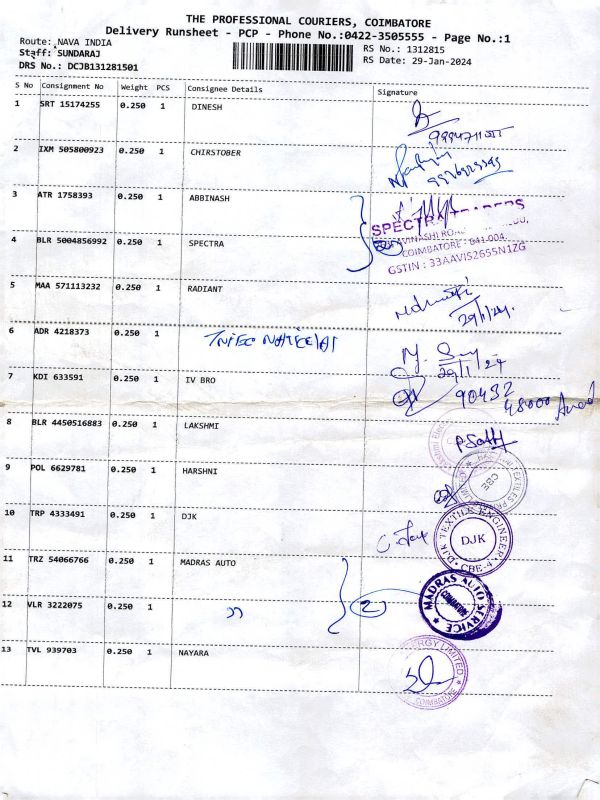 THE PROFESSIONAL COURIERS, COIMBATORE
Delivery Runsheet - PCP - Phone No.:0422-3505555 - Page No.:1
Route: NAVA INDIA
Staff: SUNDARAJ
DRS No.: DCJB131281501
RS No.: 1312815
RS Date: 29-Jan-2024
S No Consignment No Weight PCS Consignee Details Signature
1 SRT 15174255 0.250 1 DINESH
2 IXM 505800923 0.250 1 CHIRSTOBER
3 ATR 1758393 0.250 1 ABBINASH
SPECTRA
4 BLR 5004856992 0.250 1 SPECTRA
AVINASHI ROAD
COIMBATORE - 641 004.
GSTIN : 33AAVIS2655N1ZG
5 MAA 571113232 0.250 1 RADIANT
29/1/24.
6 ADR 4218373 1
29/1/24
7 KDI 633591 0.250 1 IV BRO
90432
48000
8 BLR 4450516883 0.250 1 LAKSHMI
9 POL 6629781 0.250 1 HARSHNI
CBE
10 TRP 4333491 0.250 1 DJK
DJK TEXTILE ENGINEER
DJK
CBE-4
11 TRZ 54066766 0.250 1 MADRAS AUTO
MADRAS AUTO SERVICE
COIMBATORE
12 VLR 3222075 0.250 1 ,, 2
13 TVL 939703 0.250 1 NAYARA
ENERGY LIMITED
COIMBATORE